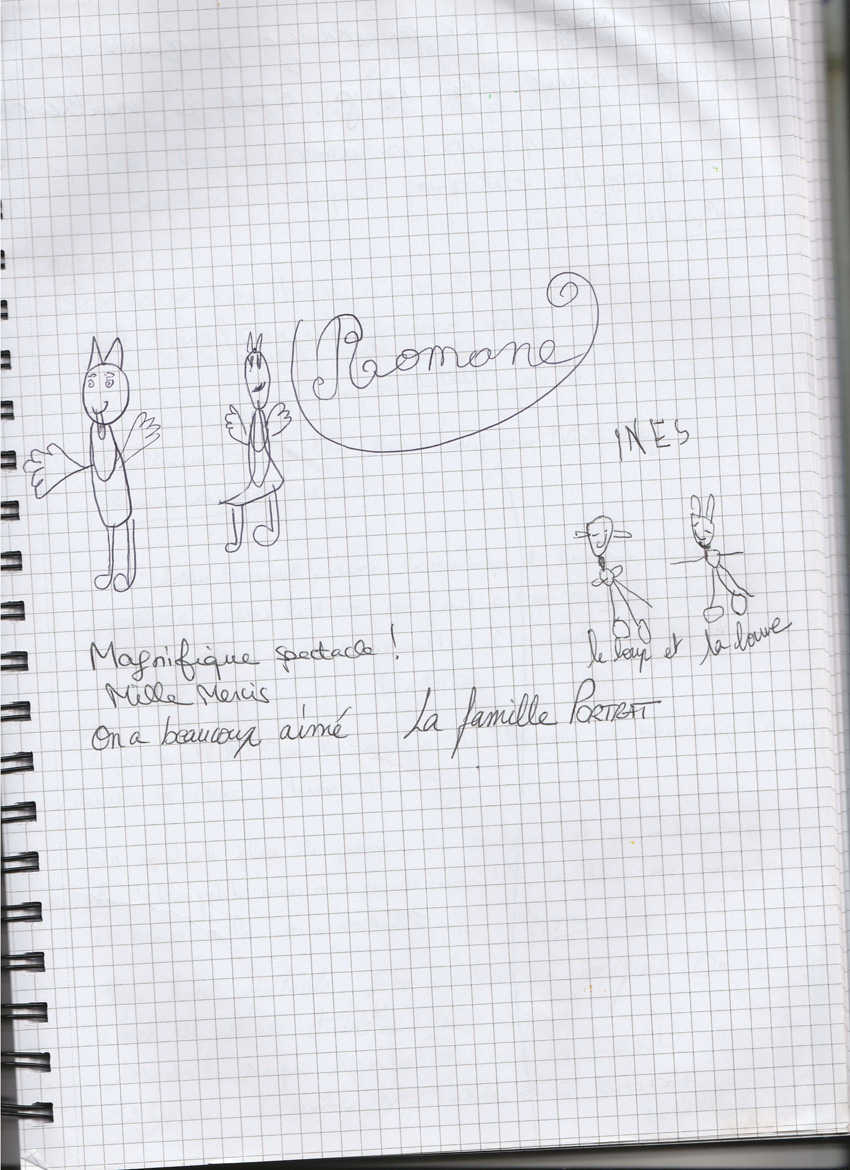 Romane
INES
le loup et la louve
Magnifique spectacle !
Mille Mercis
On a beaucoup aimé La famille PORTRAT